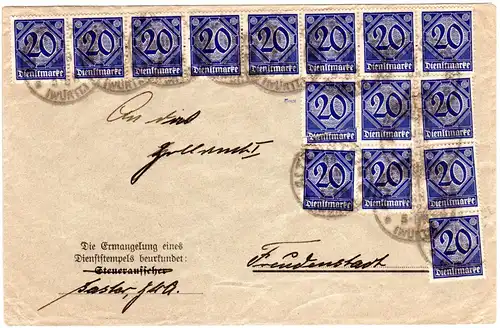 20 20 20 20 20 20 20 20
Dienstmarke Dienstmarke Dienstmarke Dienstmarke Dienstmarke Dienstmarke Dienstmarke Dienstmarke
(WÜRTT.)
20 20 20
Dienstmarke Dienstmarke Dienstmarke
An das
20 20 20
Dienstmarke Dienstmarke Dienstmarke
Zollamt I
20
Dienstmarke
Die Ermangelung eines
Dienststempels beurkundet:
Steueraufseher
Freudenstadt